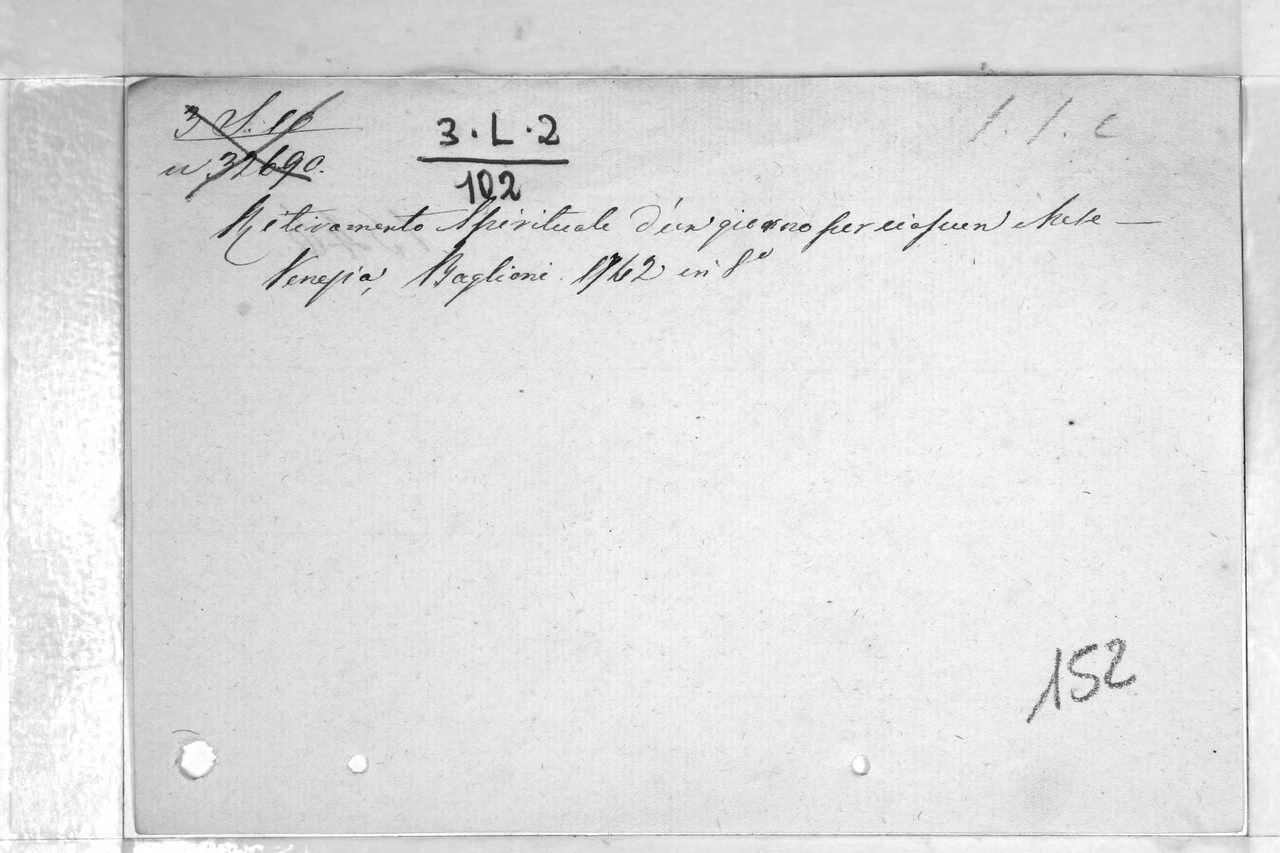 n. 32690.
3·L·2
102
Ritiramento Spirituale d'un giorno per ciascun Mese —
Venezia, Baglioni 1762 in 8°
152